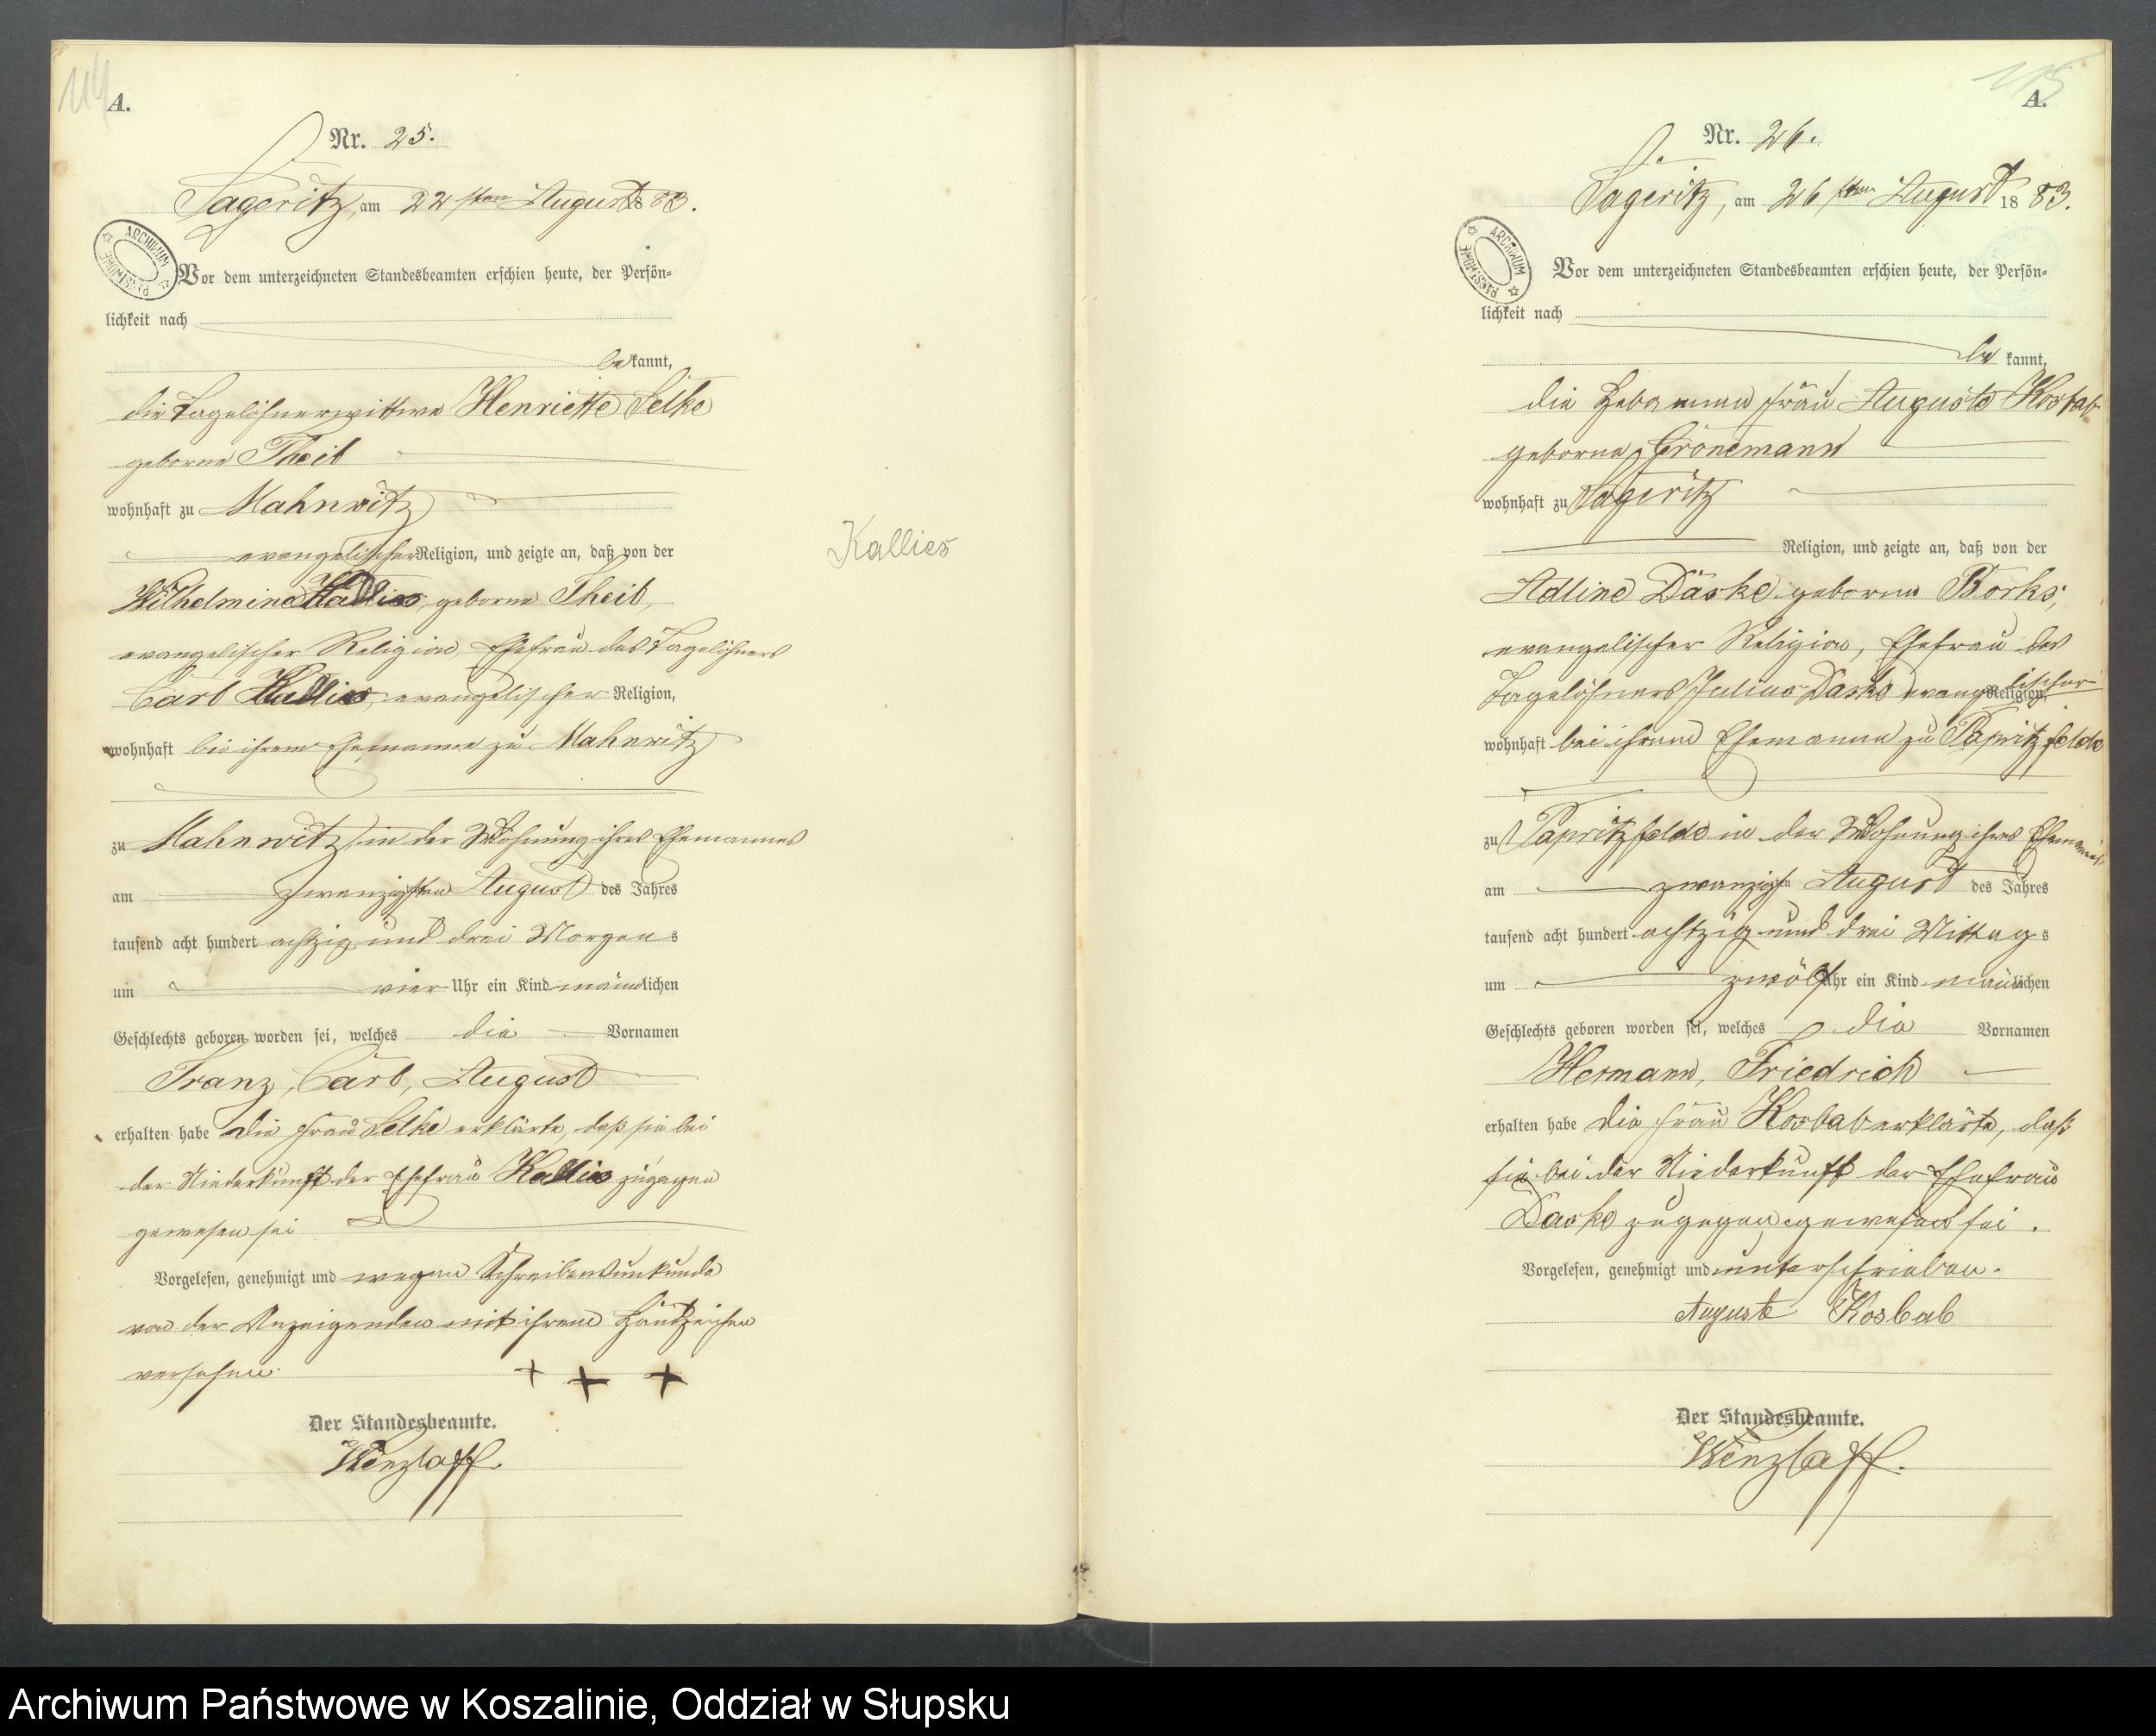 114
A.
Nr. 25.
Sageritz, am 22 sten August 1883.
ARCHIWUM PAŃSTWOWE
Vor dem unterzeichneten Standesbeamten erschien heute, der Persön-
lichkeit nach
bekannt,
die Tagelöhnerwittwe Henriette Selke
geborne Theil
wohnhaft zu Mahnwitz
evangelischer Religion, und zeigte an, daß von der
Wilhelmine Kallies, geborne Theil,
evangelischer Religion, Ehefrau des Tagelöhners
Carl Kallies, evangelischer Religion,
wohnhaft bei ihrem Ehemanne zu Mahnwitz
zu Mahnwitz in der Wohnung ihres Ehemannes
am zwanzigsten August des Jahres
tausend acht hundert achtzig und drei Morgens
um vier Uhr ein Kind männlichen
Geschlechts geboren worden sei, welches die Vornamen
Franz, Carl, August
erhalten habe Die Frau Selke erklärte, daß sie bei
der Niederkunft der Ehefrau Kallies zugegen
gewesen sei
Vorgelesen, genehmigt und wegen Schreibensunkunde
von der Anzeigenden mit ihrem Handzeichen
versehen. + + +
Der Standesbeamte.
Wenzlaff.
Kallies
115
A.
Nr. 26.
Sageritz, am 26 sten August 1883.
ARCHIWUM PAŃSTWOWE
Vor dem unterzeichneten Standesbeamten erschien heute, der Persön-
lichkeit nach
be kannt,
die Hebamme Frau Auguste Kosbab
geborne Grönemann
wohnhaft zu Sageritz
Religion, und zeigte an, daß von der
Adline Daske geborne Borks,
evangelischer Religion, Ehefrau des
Tagelöhners Julius Daske evangelischer Religion,
wohnhaft bei ihrem Ehemanne zu Papritzfelde
zu Papritzfelde in der Wohnung ihres Ehemannes
am zwanzigsten August des Jahres
tausend acht hundert achtzig und drei Mittags
um zwölf Uhr ein Kind männlichen
Geschlechts geboren worden sei, welches die Vornamen
Hermann, Friedrich
erhalten habe Die Frau Kosbab erklärte, daß
sie bei der Niederkunft der Ehefrau
Daske zugegen gewesen sei.
Vorgelesen, genehmigt und unterschrieben.
Auguste Kosbab
Der Standesbeamte.
Wenzlaff.
Archiwum Państwowe w Koszalinie, Oddział w Słupsku